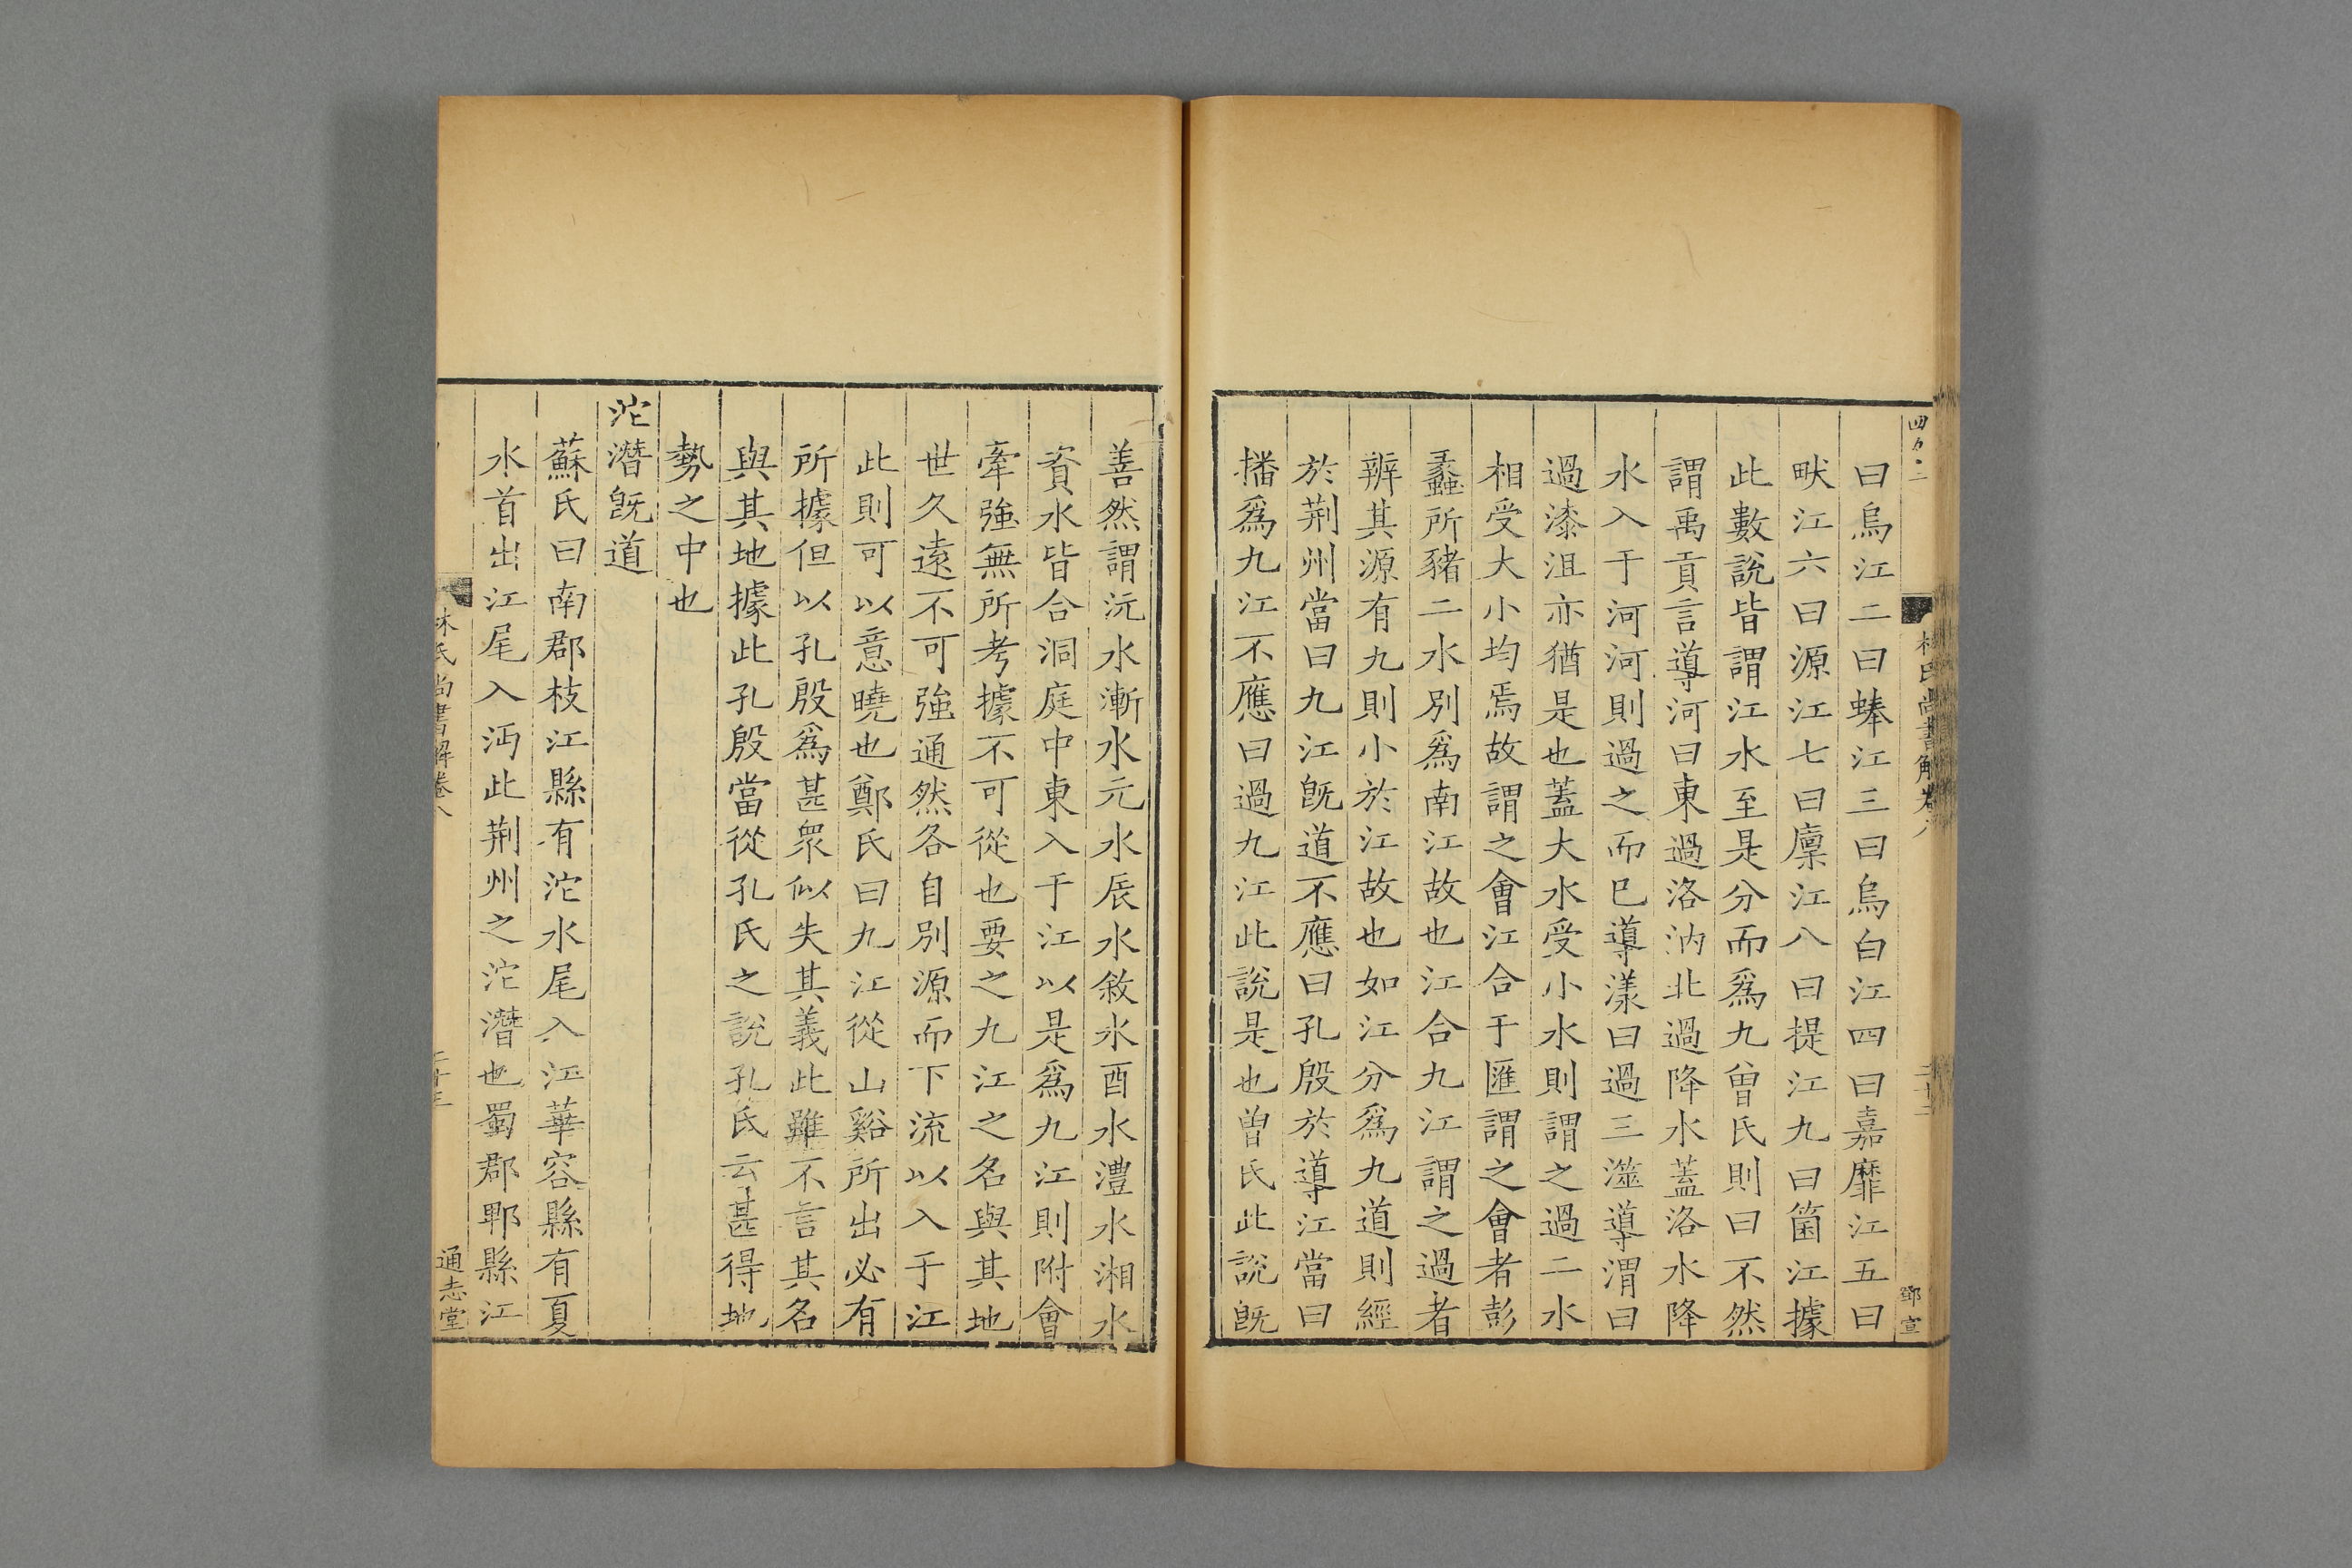 林氏尚書解卷八
鄧宣
曰烏江二曰蜯江三曰烏白江四曰嘉靡江五曰
畎江六曰源江七曰廩江八曰提江九曰箘江據
此數說皆謂江水至是分而爲九曾氏則曰不然
謂禹貢言導河曰東過洛汭北過降水蓋洛水降
水入于河河則過之而巳導漾曰過三澨導渭曰
過漆沮亦猶是也蓋大水受小水則謂之過二水
相受大小均焉故謂之會江合于匯謂之會者彭
蠡所豬二水別爲南江故也江合九江謂之過者
辨其源有九則小於江故也如江分爲九道則經
於荆州當曰九江旣道不應曰孔殷於導江當曰
播爲九江不應曰過九江此說是也曾氏此說旣
善然謂沅水漸水元水辰水敘水酉水澧水湘水
資水皆合洞庭中東入于江以是爲九江則附會
牽強無所考據不可從也要之九江之名與其地
世久遠不可強通然各自別源而下流以入于江
此則可以意曉也鄭氏曰九江從山谿所出必有
所據但以孔殷爲甚衆似失其義此雖不言其名
與其地據此孔殷當從孔氏之說孔氏云甚得地
勢之中也
沱潛旣道
蘇氏曰南郡枝江縣有沱水尾入江華容縣有夏
水首出江尾入沔此荆州之沱潛也蜀郡郫縣江
林氏尚書解卷八
二十三
通志堂